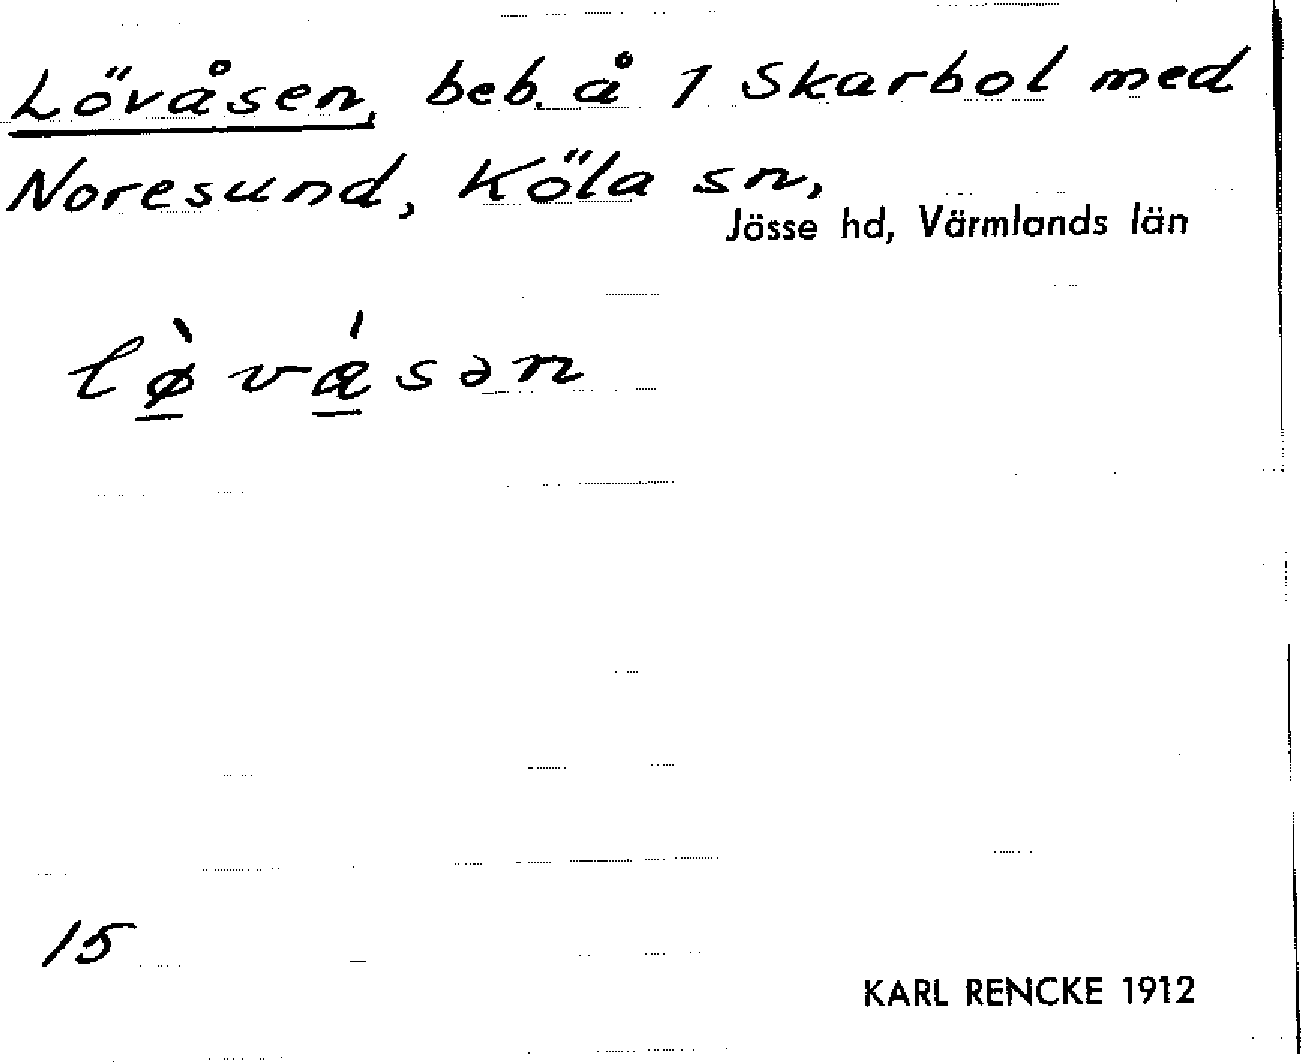 Lövåsen, beb. å 1 Skarbol med
Noresund, Köla sn,
Jösse hd, Värmlands län
lø̱̀vǻ̱sən
15
KARL RENCKE 1912